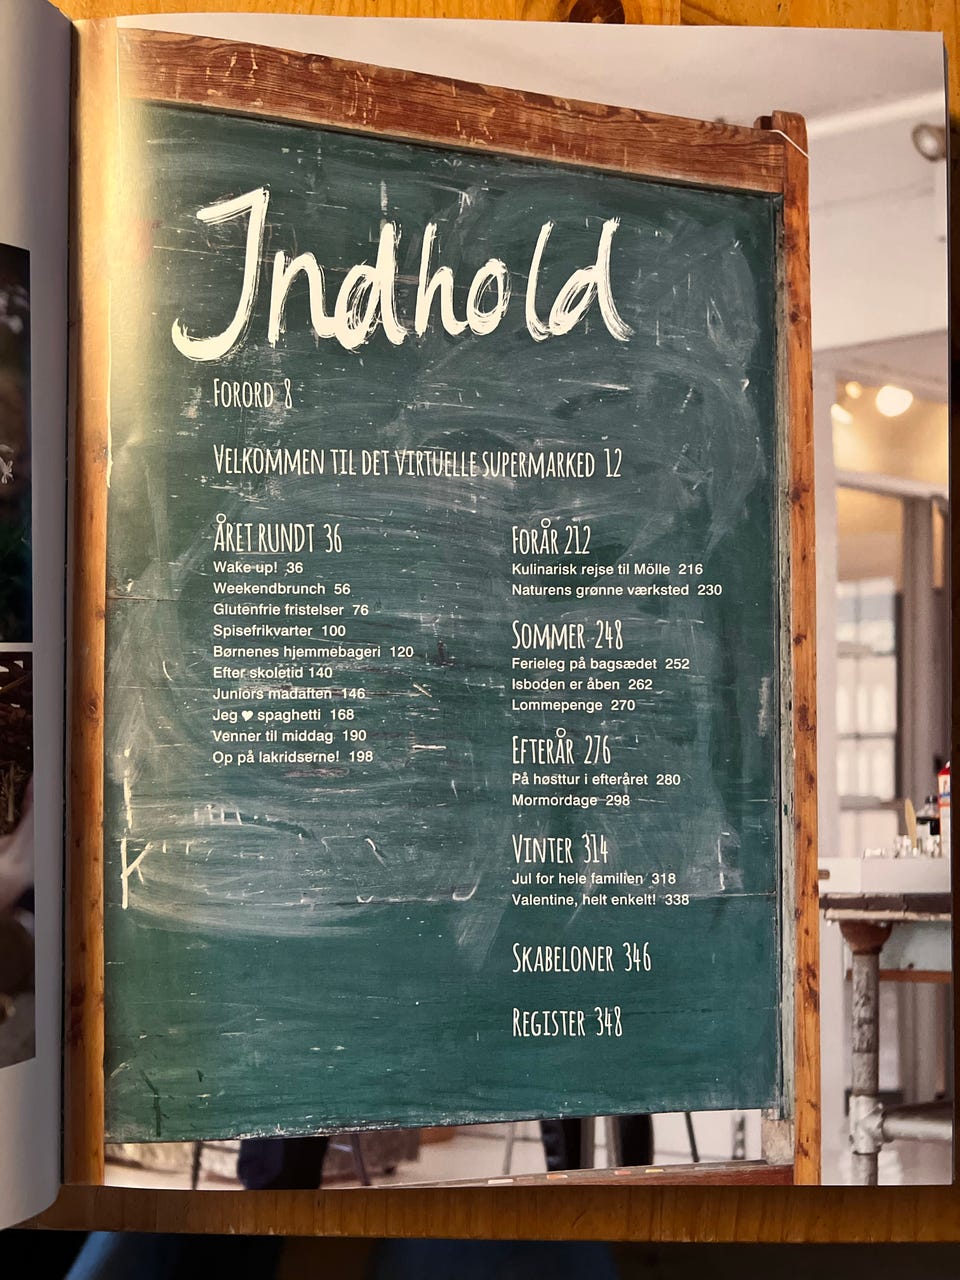 Indhold
FORORD 8
VELKOMMEN TIL DET VIRTUELLE SUPERMARKED 12
ÅRET RUNDT 36
Wake up! 36
Weekendbrunch 56
Glutenfrie fristelser 76
Spisefrikvarter 100
Børnenes hjemmebageri 120
Efter skoletid 140
Juniors madaften 146
Jeg ♥ spaghetti 168
Venner til middag 190
Op på lakridserne! 198
FORÅR 212
Kulinarisk rejse til Mölle 216
Naturens grønne værksted 230
SOMMER 248
Ferieleg på bagsædet 252
Isboden er åben 262
Lommepenge 270
EFTERÅR 276
På høsttur i efteråret 280
Mormordage 298
VINTER 314
Jul for hele familien 318
Valentine, helt enkelt! 338
SKABELONER 346
REGISTER 348